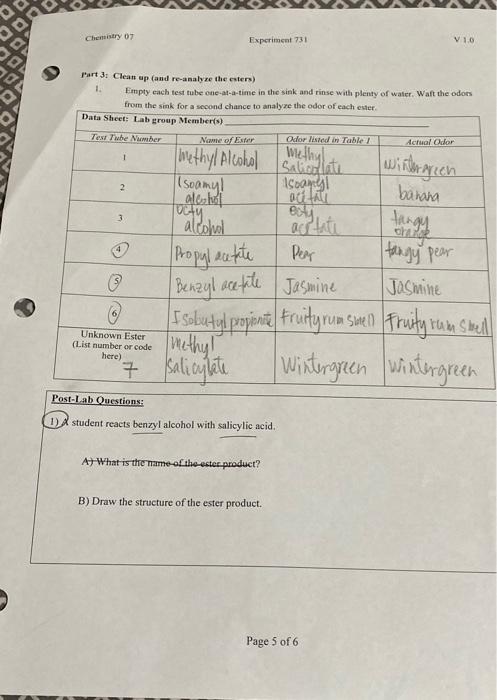 Chemistry 07 Experiment 731 V 1.0
Part 3: Clean up (and re-analyze the esters)
1. Empty each test tube one-at-a-time in the sink and rinse with plenty of water. Waft the odors
from the sink for a second chance to analyze the odor of each ester.
Data Sheet: Lab group Member(s)
Test Tube Number Name of Ester Odor listed in Table 1 Actual Odor
1 Methyl Alcohol Methyl Salicylate wintergreen
2 Isoamyl alcohol Isoamyl acetate banana
3 Octy alcohol octy acetate tangy orange
4 Propyl acetate Pear tangy pear
5 Benzyl acetate Jasmine Jasmine
6 Isobutyl propionate Fruity rum smell Fruity rum smell
Unknown Ester
(List number or code
here)
7 Methyl Salicylate Wintergreen wintergreen
Post-Lab Questions:
1) A student reacts benzyl alcohol with salicylic acid.
A) What is the name of the ester product?
B) Draw the structure of the ester product.
Page 5 of 6